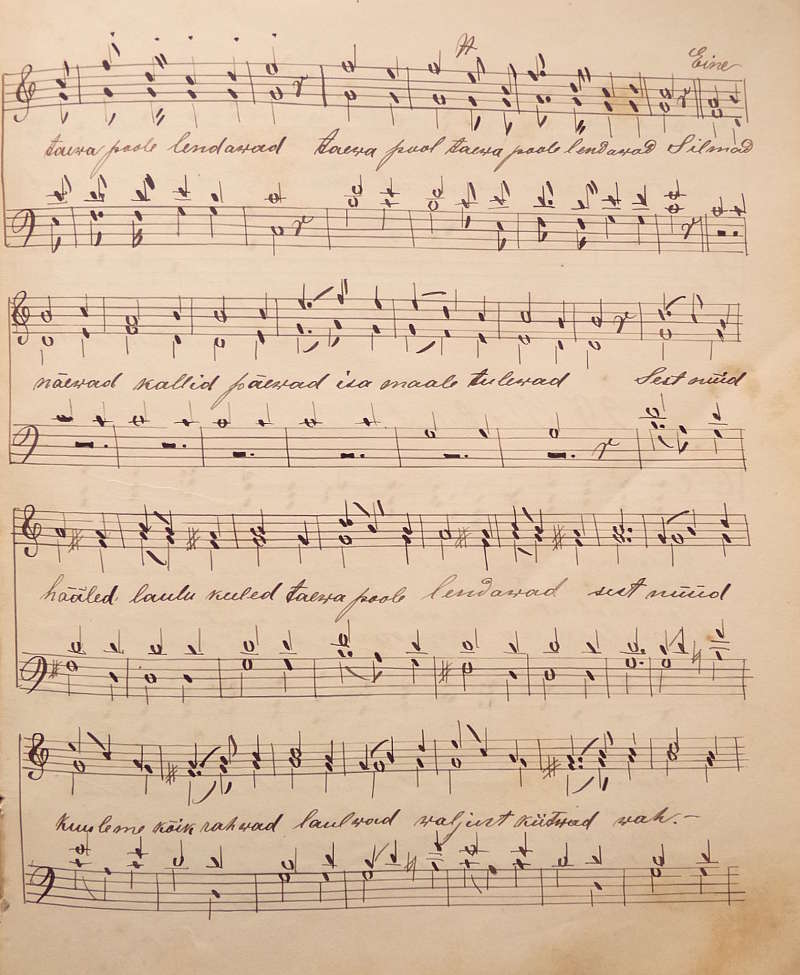 Eine
taewa poole lendawad taewa pool taewa poole lendawad Silmad
näewad kallid päewad isa maale tulewad Sest nüüd
hääled laulu keeled taewa poole lendawad sest nüüd
kuuleme kõik rahwad laulwad waljust kiitwad wah.-